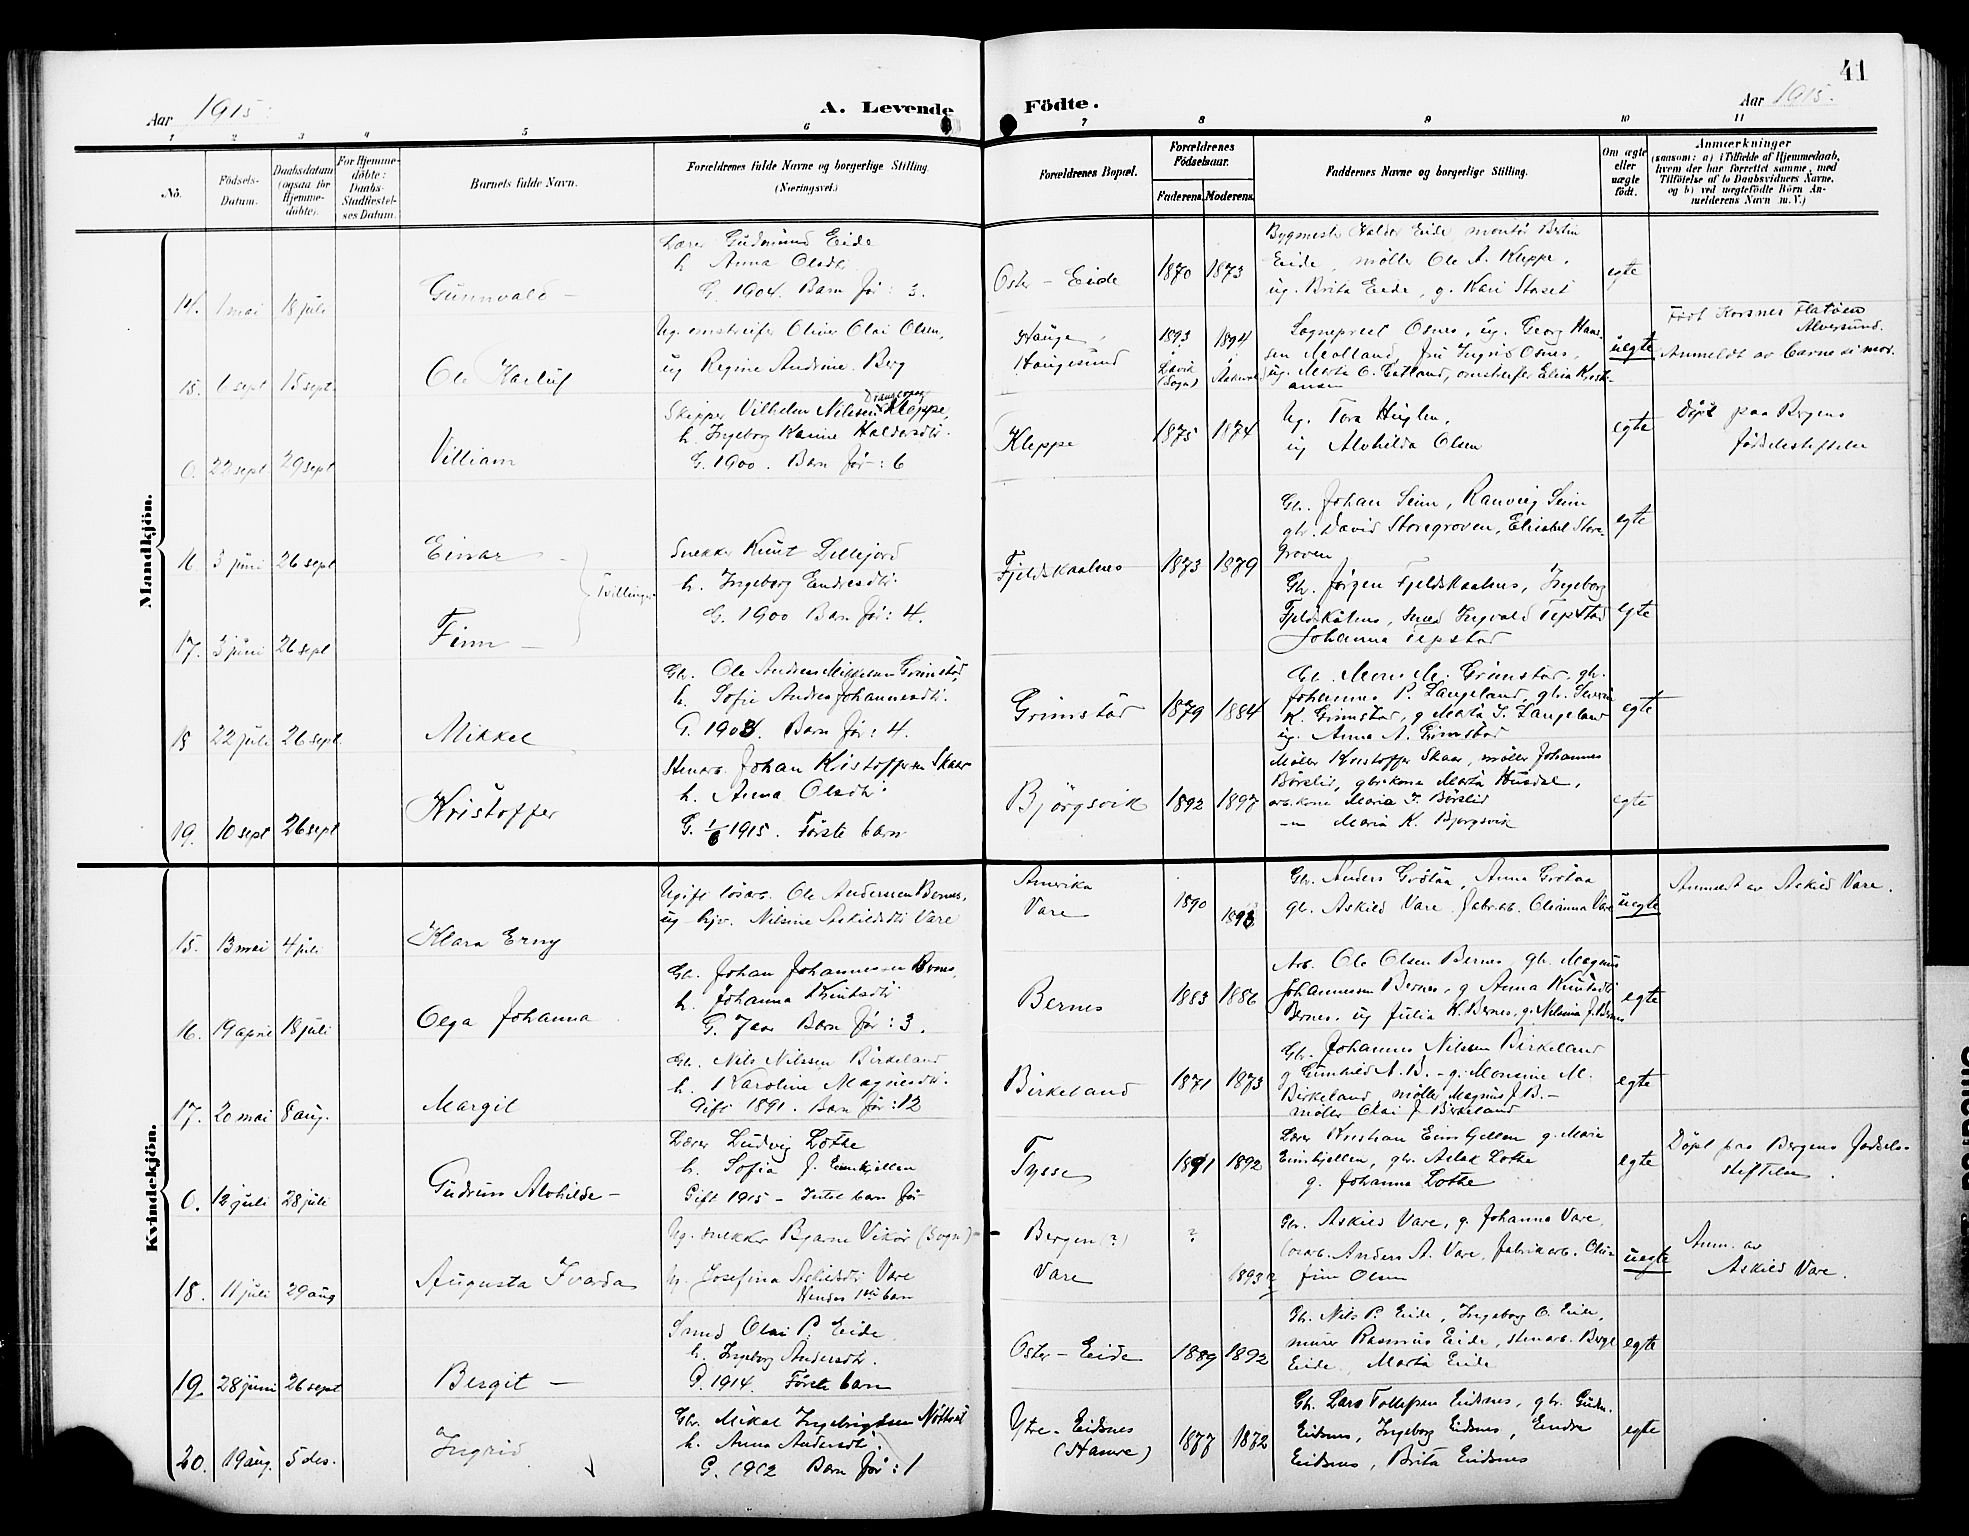 41
Aar 1915.
A. Levende Födte.
Aar 1915.
1 2 3 4 5 6 7 8 9 10 11
No.
Födsels-Datum.
Daabsdatum (ogsaa for Hjemmedöbte).
For Hjemmedöbte: Daabs-Stadfæstelses Datum.
Barnets fulde Navn.
Forældrenes fulde Navne og borgerlige Stilling.
(Næringsvei.)
Forældrenes Bopæl.
Forældrenes Födselsaar.
Faderens. Moderens.
Faddernes Navne og borgerlige Stilling.
Om ægte eller uægte födt.
Anmærkninger
(saasom: a) i Tilfælde af Hjemmedaab, hvem der har forrettet samme, med Tilföielse af to Daabsvidners Navne, og b) ved uægtefödte Börn Anmelderens Navn m. V.)
Mandkjön.
14. 1 mai 18 juli Gunnvald –
Lærer Gudmund Eide
h. Anna Olsdtr.
G. 1904. Barn før: 3.
Oster – Eide 1870 1873
Bygmester Haldor Eide, montør Bertin
Eide, møller Ole A. Kleppe,
ug. Brita Eide, g. Kari Staset
egte
15. 6 sept 15 sept. Ole Karluf
Ug. omstreifer Oliver Olai Olsen,
ug Regine Andrine Berg
Hauge, Haugesund
1893 Lavik (Sogn) 1894
Sogneprest Osnes, ug. Georg Hansen Molland, fru Ingrid Osnes,
ug. Marta O. Eatland, omstreifer Elisa Kristiansen
uegte
Født Korsnes Flatøen
Alversund.
Anmeldt av barnets mor.
0. 22 sept 29 sept Villiam
Skipper Vilhelm Nilsen Kleppe,
h. Ingeborg Karine Haldorsdtr.
G. 1900. Barn før: 6
Kleppe 1875 1874
Ug. Tora Huglen,
ug Alvhilda Olsen
egte
Døpt paa Bergens
fødselsstiftelse
16. 3 juni 26 sept Einar –
17. 3 juni 26 sept Finn –
Tvillinger
Snekker Knut Lillejord
h. Ingeborg Endresdtr.
G. 1900 Barn før: 4.
Fjeldskaalnes 1873 1879
Gb. Johan Seim, Ranveig Seim
gb. David Storegroven, Elisabet Storegroven
egte
Gb. Jørgen Fjeldskaalnes, Ingeborg
Fjeldskålnes, Smed Ingvald Tepstad
Johanna Tepstad
egte
18 22 juli 26 sept Mikkel
Gb. Ole Andreas Mikkelsen Grimstad,
h. Sofie Andrea Johannesdtr.
G. 1903. Barn før: 4.
Grimstad 1879 1884
Gb. Mons M. Grimstad, gb.
Johannes P. Langeland, gb. Severin
K. Grimstad, g Marta I. Langeland
ug. Anna A. Grimstad
egte
19. 10 sept 26 sept Kristoffer
Stenarb. Johan Kristoffersen Skaar
h. Anna Olsdtr.
G. 1/6 1915. Første barn
Bjørgsvik 1892 1897
Møller Kristoffer Skaar, møller Johannes
Børslid, gbr.kone Marta Husdal,
arb.kone Maria I. Børslid
–"– Maria K. Bjørgsvik
egte
Kvindekjön.
15. 13 mai 4 juli Klara Erny
Ugift løsarb. Ole Anderssen Bernes,
ug hjv. Nilsine Askildsdtr Vare
Amerika
Vare 1890 1893
Gb. Anders Grøtaa, Anna Grøtaa
gb. Askild Vare, fabr.arb. Olianna Vare
uegte
Anmeldt av Askild Vare.
16. 19 april 18 juli Olga Johanna
Gb. Johan Johannessen Bernes,
h. Johanna Knutsdtr
G. 7 aar Barn før: 3.
Bernes 1883 1886
Arb. Ole Olsen Bernes, gb. Magnus
Johannessen Bernes, g Anna Knutsdtr
Bernes, ug Julia K. Bernes, g. Nilsina J. Bernes
egte
17. 20 mai 8 aug. Margit
Gb. Nils Nilssen Birkeland
h. Karoline Magnesdtr.
Gift 1891. Barn før: 12
Birkeland 1871 1873
Gb. Johannes Nilsen Birkeland
g Gunhild A. B. – g. Monsine M.
Birkeland, møller Magnus J. B. –
møller Olai J. Birkeland
egte
0. 12 juli 28 juli Gudrun Alvhilde –
Lærer Ludvig Lothe
h. Sofia J. Eimhjellen
Gift 1915 – Intet barn før
Tysse 1891 1892
Lærer Kristian Eimhjellen g. Marie
Eimhjellen, gb. Aslak Lothe
g. Johanna Lothe
egte
Døpt paa Bergens fødselsstiftelse.
18. 11 juli 29 aug Augusta Ivarda
Ug. snekker Bjarne Vikør (Sogn) –
ug. Josefina Askildsdtr Vare
Hendes 1ste barn
Bergen (?)
Vare ? 1893
Gb. Askild Vare, g. Johanna Vare,
løsarb. Anders A. Vare, fabrikarb.
Olsen
uegte
Anm. av
Askild Vare.
19. 28 juni 26 sept Bergit –
Smed Olai P. Eide,
h. Ingeborg Andersdtr.
G. 1914. Første barn
Oster – Eide 1889 1892
Gb. Nils P. Eide, Ingeborg O. Eide,
murer Rasmus Eide, stenarb. Berge
Eide, Marta Eide
egte
20. 19 aug. 5 des. Ingrid
Gbr. Mikal Ingebrigtsen Nøttveit
h. Anna Andersdtr.
G. 1912 Barn før: 1
Ytre – Eidsnes
(Hamre) 1877 1872
Gb. Lars Tollefsen Eidsnes, gb. Gudm.
Eidsnes, Ingeborg Eidsnes, Endre
Eidsnes, Brita Eidsnes
egte